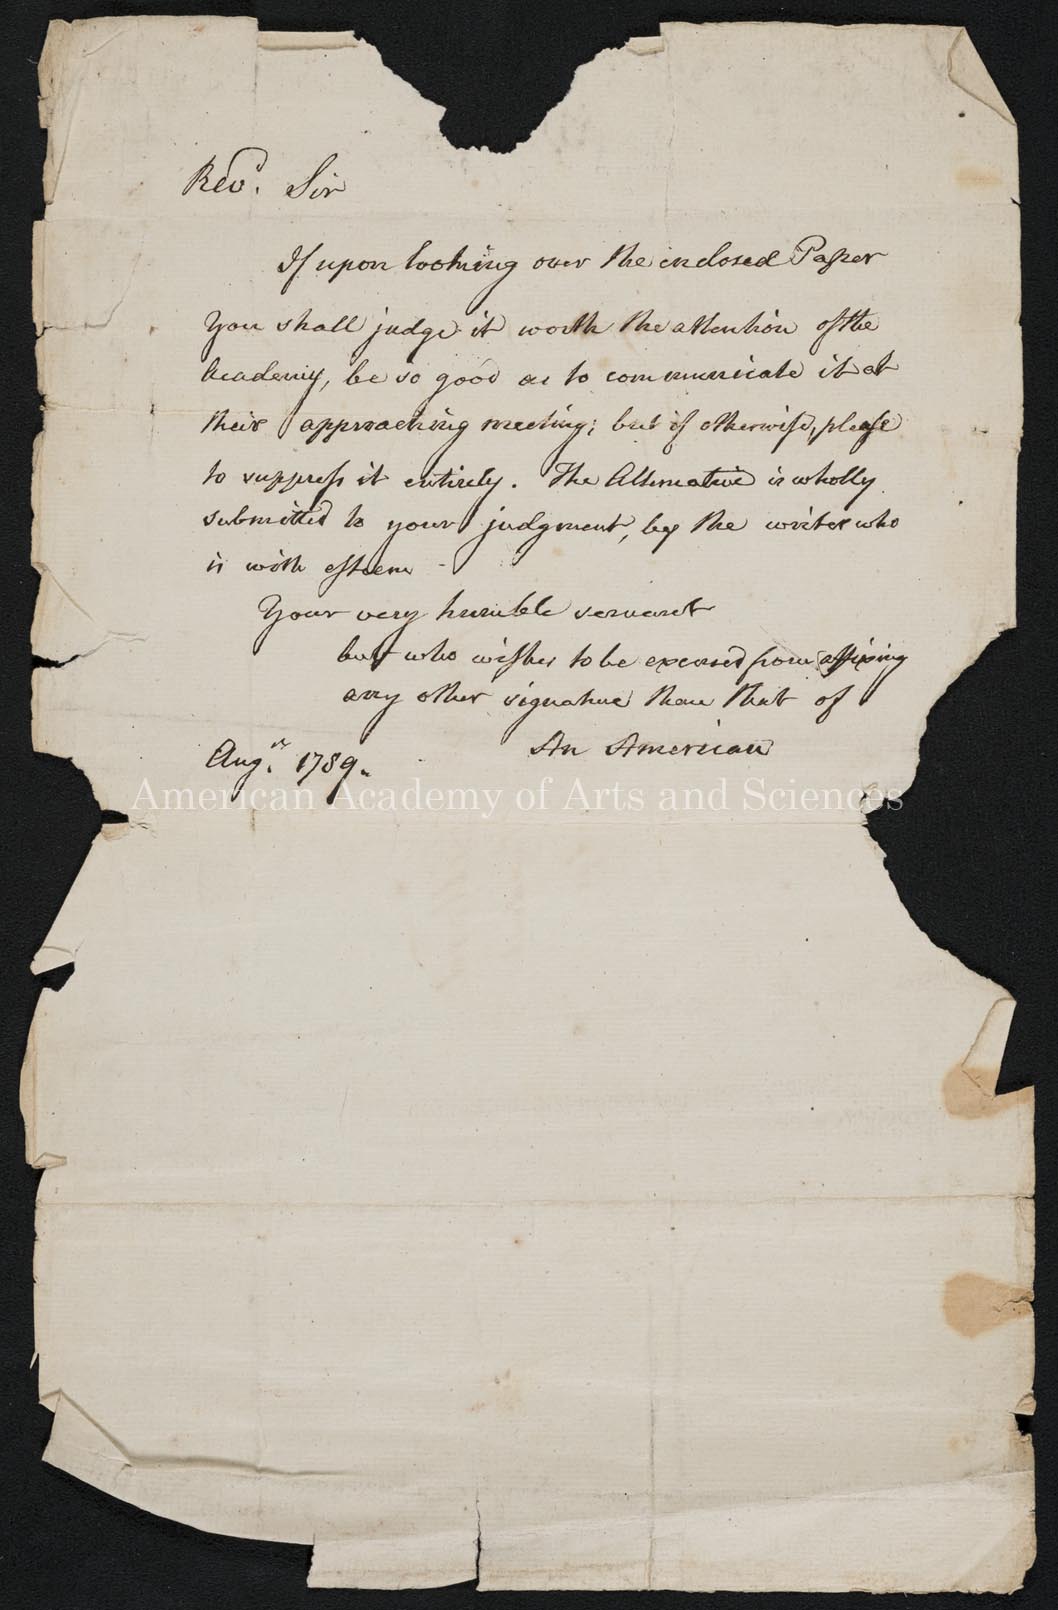 Rev.d Sir
If upon looking over the inclosed Paper
You shall judge it worth the attention of the
Academy, be so good as to communicate it at
their approaching meeting; but if otherwise, please
to suppress it entirely. The Alternative is wholly
submitted to your judgment, by the writer who
is with esteem -
Your very humble servant
but who wishes to be excused from affixing
any other signature than that of
An American
Aug.st 1789.
American Academy of Arts and Sciences